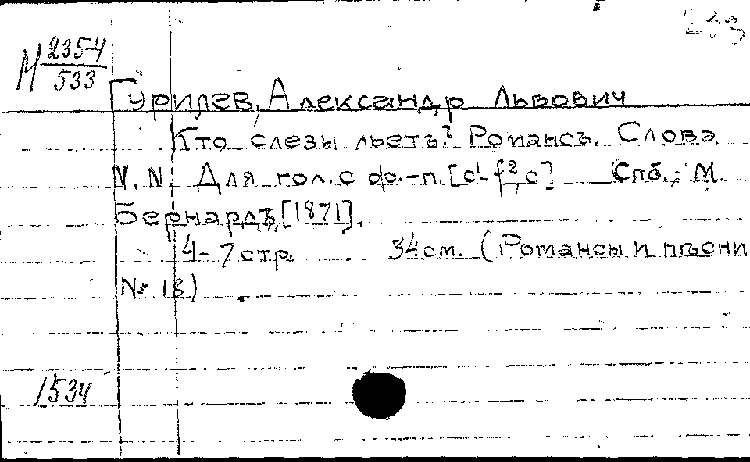 М 2354
533
Гурилев, Александр Львович
Кто слезы льетъ? Романсъ. Слова
N. N. Для гол. с ф.-п. [c¹-f², c] Спб., М.
Бернардъ, [1871].
4-7 стр. 34 см. (Романсы и пѣсни
№ 18)
1534